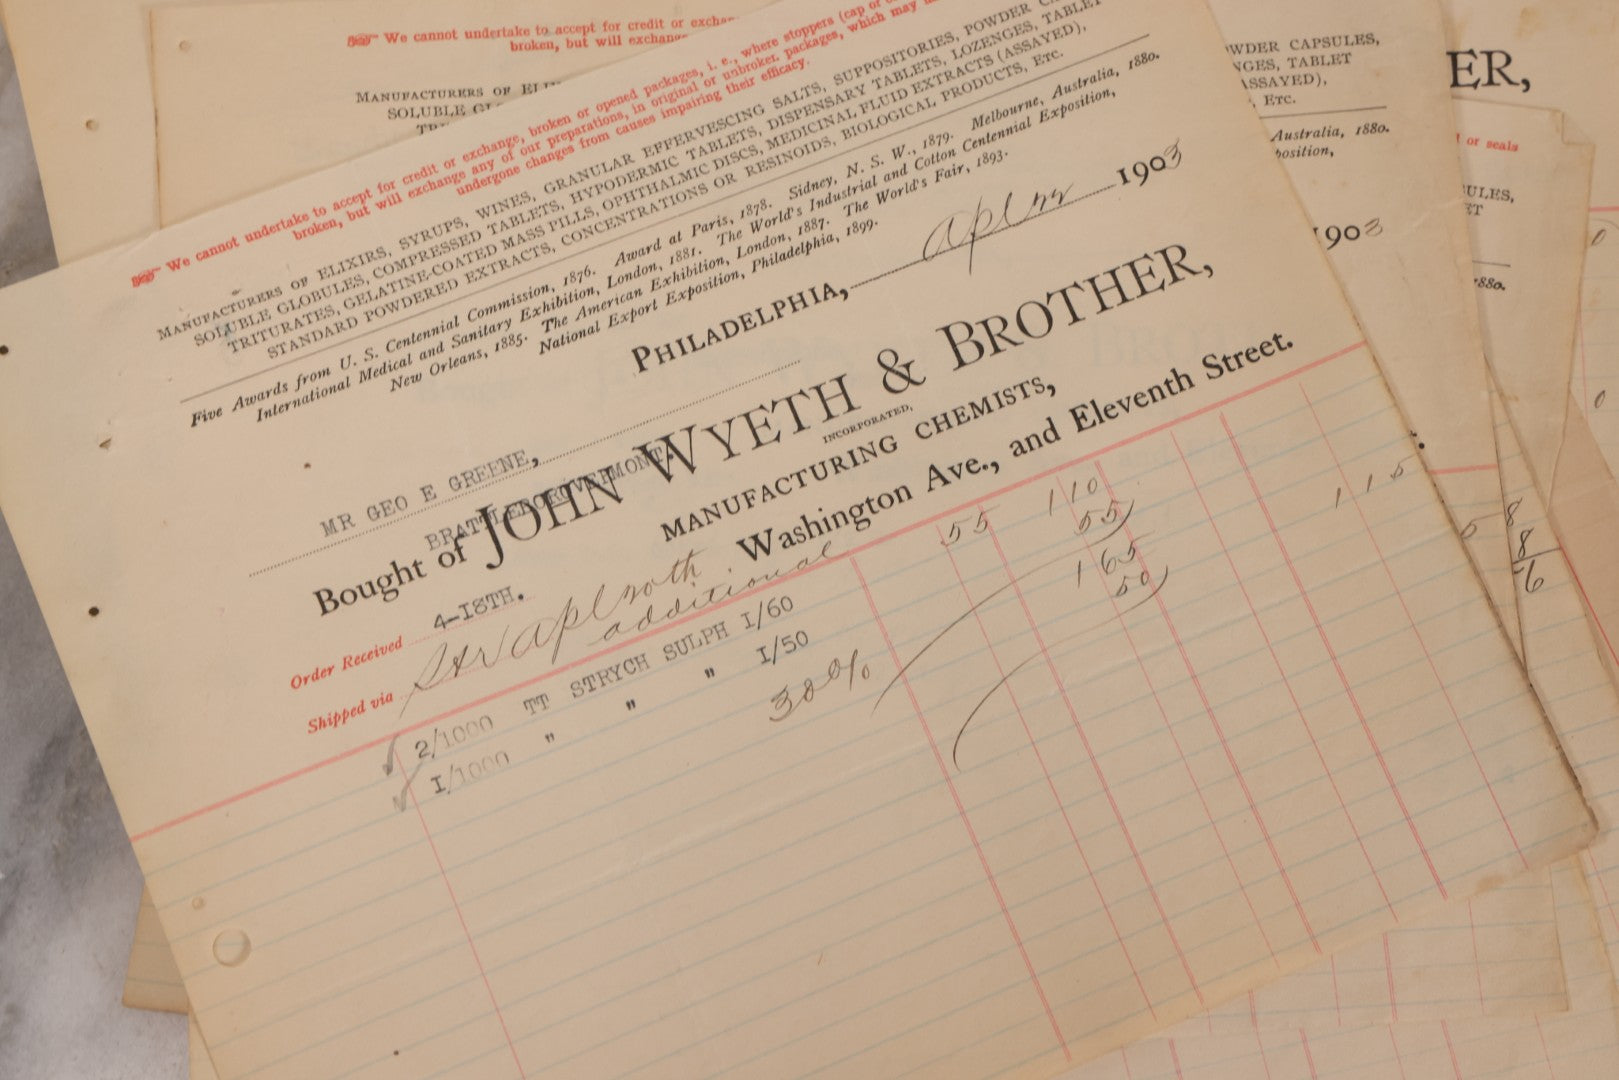 We cannot undertake to accept for credit or exchange, broken or opened packages, i. e., where stoppers (cap or
broken, but will exchange any of our preparations, in original or unbroken packages, which may
undergone changes from causes impairing their efficacy.
MANUFACTURERS OF ELIXIRS, SYRUPS, WINES, GRANULAR EFFERVESCING SALTS, SUPPOSITORIES, POWDER
SOLUBLE GLOBULES, COMPRESSED TABLETS, HYPODERMIC TABLETS, DISPENSARY TABLETS, LOZENGES, TABLET
TRITURATES, GELATINE-COATED MASS PILLS, OPHTHALMIC DISCS, MEDICINAL FLUID EXTRACTS (ASSAYED),
STANDARD POWDERED EXTRACTS, CONCENTRATIONS OR RESINOIDS, BIOLOGICAL PRODUCTS, ETC.
Five Awards from U. S. Centennial Commission, 1876. Award at Paris, 1878. Sidney, N. S. W., 1879. Melbourne, Australia, 1880.
International Medical and Sanitary Exhibition, London, 1881. The World's Industrial and Cotton Centennial Exposition,
New Orleans, 1885. The American Exhibition, London, 1887. The World's Fair, 1893.
National Export Exposition, Philadelphia, 1899.
PHILADELPHIA, 1903
MR GEO E GREENE,
BRATTLEBORO VERMONT.
Bought of JOHN WYETH & BROTHER,
INCORPORATED,
MANUFACTURING CHEMISTS,
Washington Ave., and Eleventh Street.
Order Received 4-18TH.
Shipped via
additional
2/1000 TT STRYCH SULPH 1/60 55 1 10
1/1000 " " " 1/50 55
1 65
30% 50
1 15
We cannot undertake to accept for credit or
broken, but will exchange
MANUFACTURERS OF
SOLUBLE
POWDER CAPSULES,
TABLET
ASSAYED),
ETC.
Australia, 1880.
1903
ER,
or seals
1880.